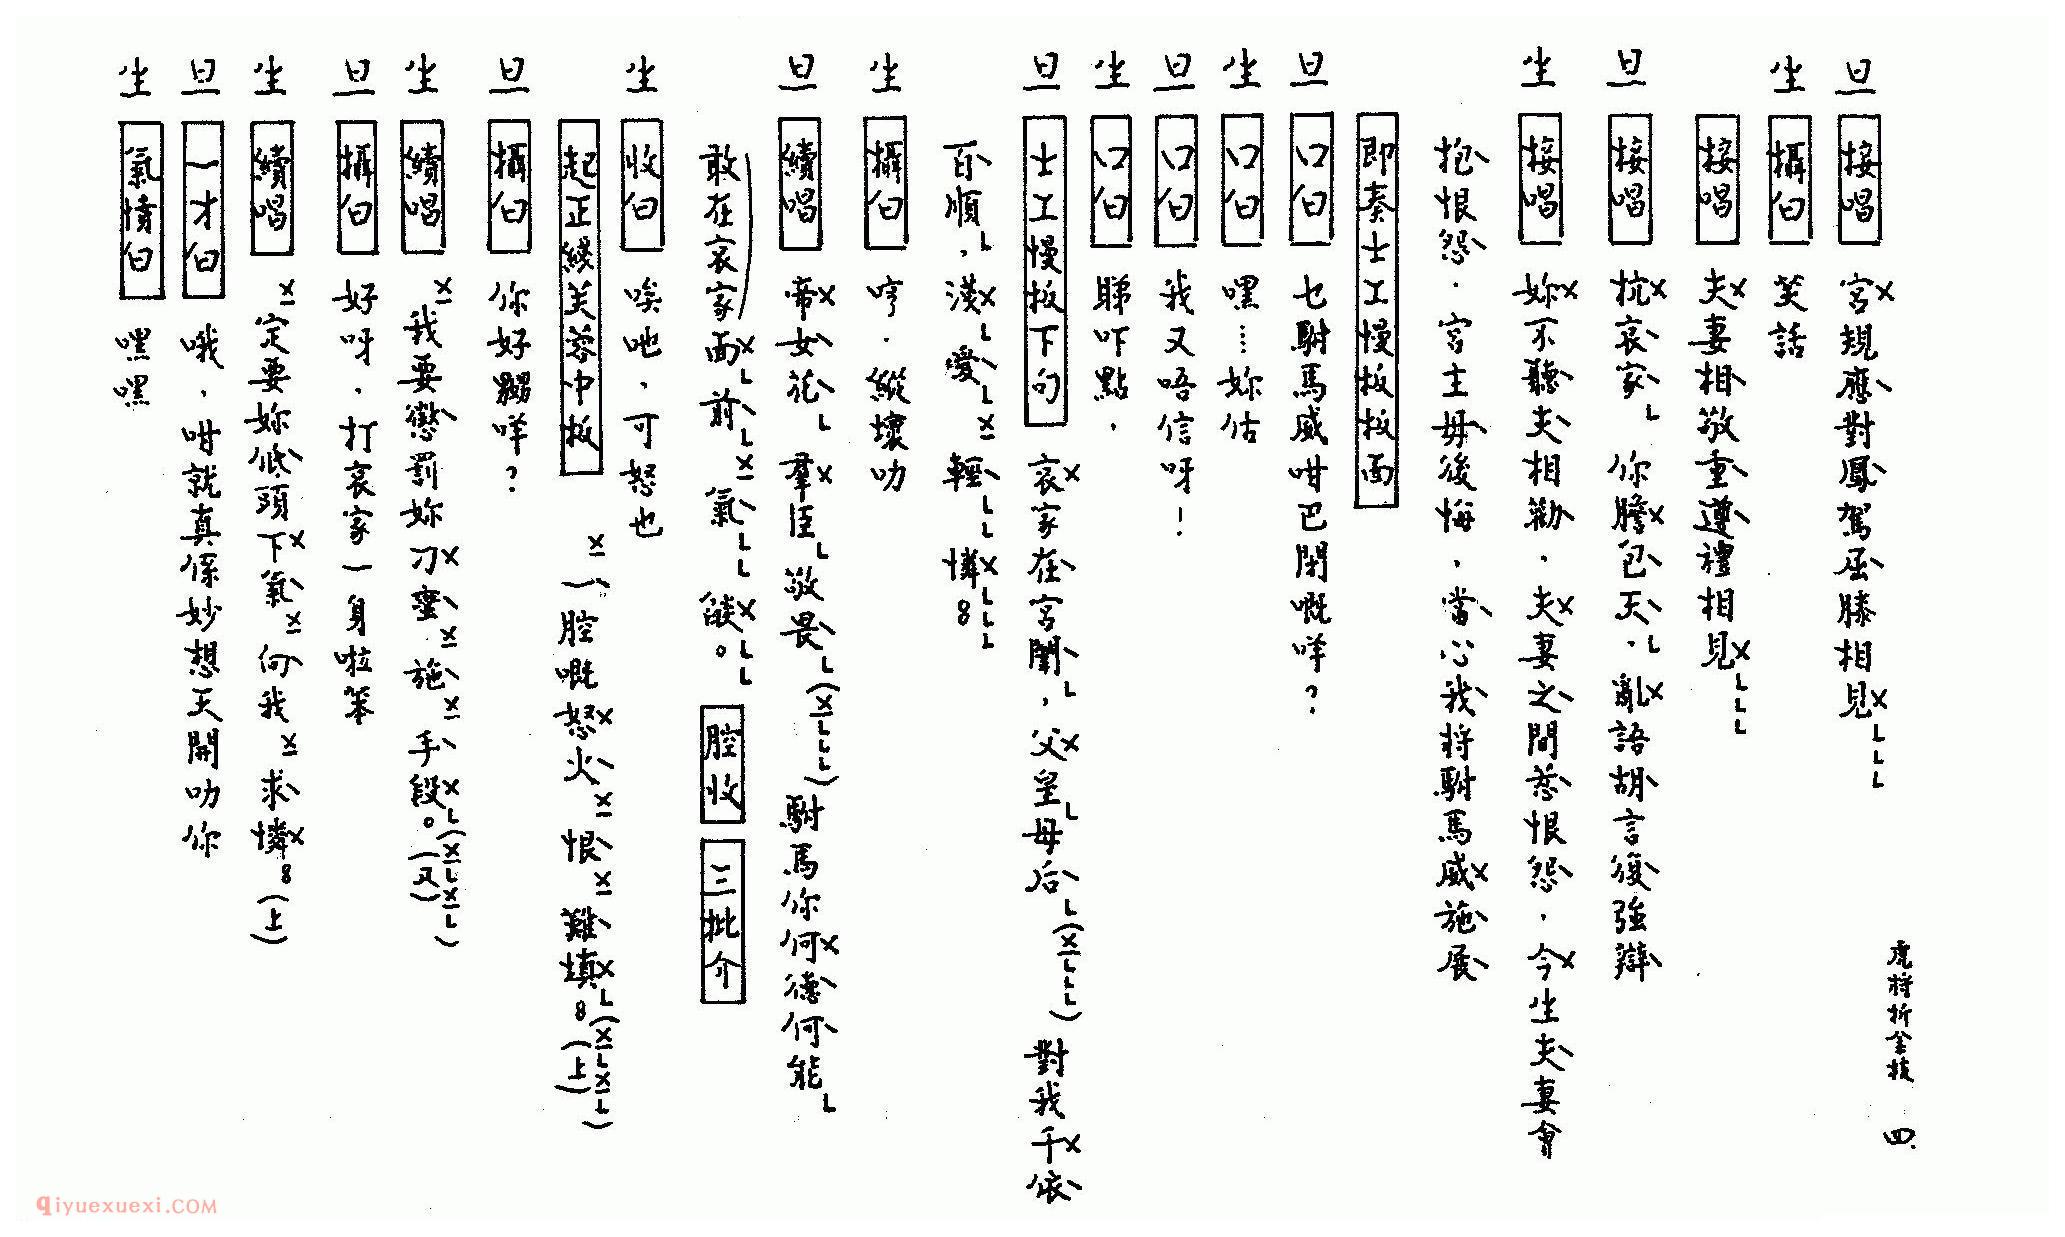 虎將折金枝 四.
旦 接唱 宮規應對鳳駕屈膝相見
生 攝白 笑話
接唱 夫妻相敬重遵禮相見
旦 接唱 抗哀家 你膽包天．亂語胡言復強辯
生 接唱 妳不聽夫相勸．夫妻之間惹恨怨．今生夫妻會
抱恨怨．宮主毋後悔．當心我將駙馬威施展
即奏士工慢板板面
旦 口白 乜駙馬威咁巴閉嘅咩？
生 口白 嘿……妳估
旦 口白 我又唔信呀！
生 口白 睇吓點．
旦 士工慢板下句 哀家在宮闈，父皇母后 對我千依
百順．淺愛 輕憐。
生 攝白 哼．縱壞叻
旦 續唱 帝女花 羣臣敬畏 駙馬你何德何能
敢在哀家面前 氣燄。 腔收 三批介
生 收白 唉吔，可怒也
起正綫芙蓉中板 一腔嘅怒火 恨難填。（上）
旦 攝白 你好嬲咩？
生 續唱 我要懲罰妳刁蠻 施手段。（叉）
旦 攝白 好呀．打哀家一身啦笨
生 續唱 定要妳低頭下氣 向我求憐。（上）
旦 一才白 哦．咁就真係妙想天開叻你
生 氣憤白 嘿嘿
qiyuexuexi.COM